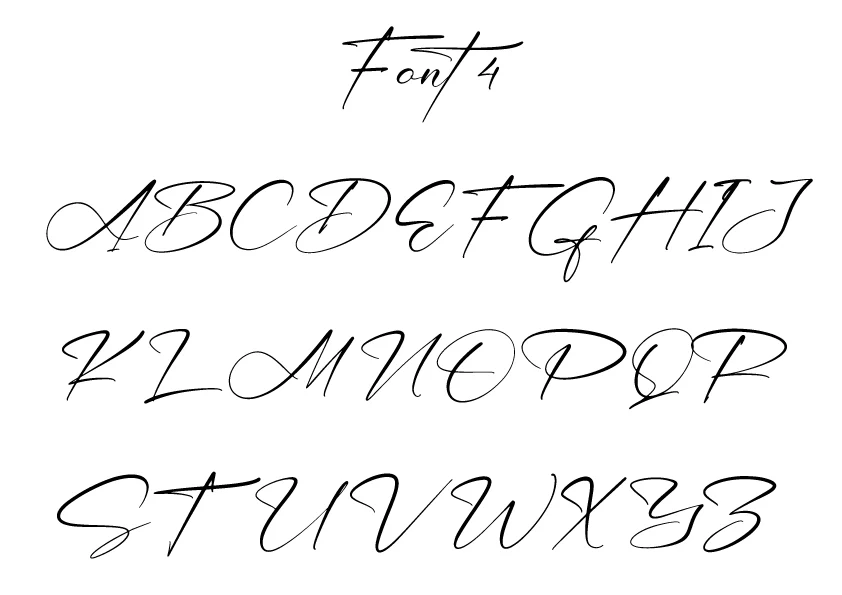 Font 4
ABCDEFGHIJ
KLMNOPQR
STUVWXYZ